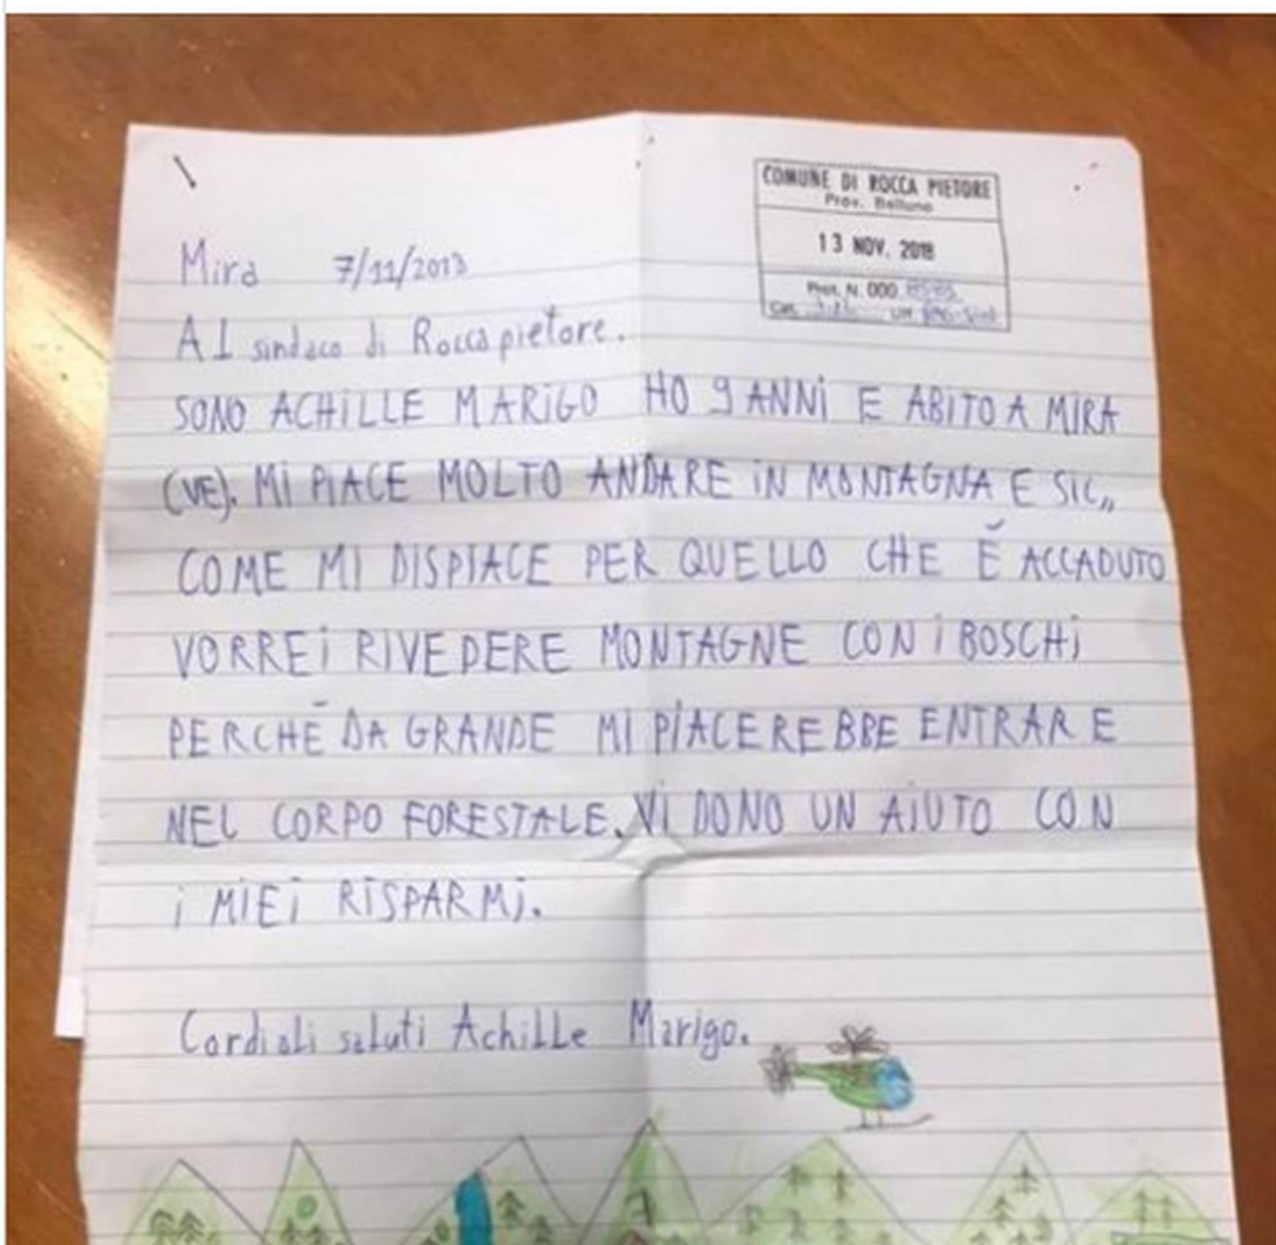 COMUNE DI ROCCA PIETORE
Prov. Belluno
13 NOV. 2018
Prot. N. 000
Cat.
Mira 7/11/2018
Al sindaco di Rocca pietore.
SONO ACHILLE MARIGO HO 9 ANNI E ABITO A MIRA
(VE). MI PIACE MOLTO ANDARE IN MONTAGNA E SIC„
COME MI DISPIACE PER QUELLO CHE É ACCADUTO
VORREI RIVEDERE MONTAGNE CON I BOSCHI
PERCHÉ DA GRANDE MI PIACEREBBE ENTRARE
NEL CORPO FORESTALE. VI DONO UN AIUTO CON
I MIEI RISPARMI.
Cordiali saluti Achille Marigo.